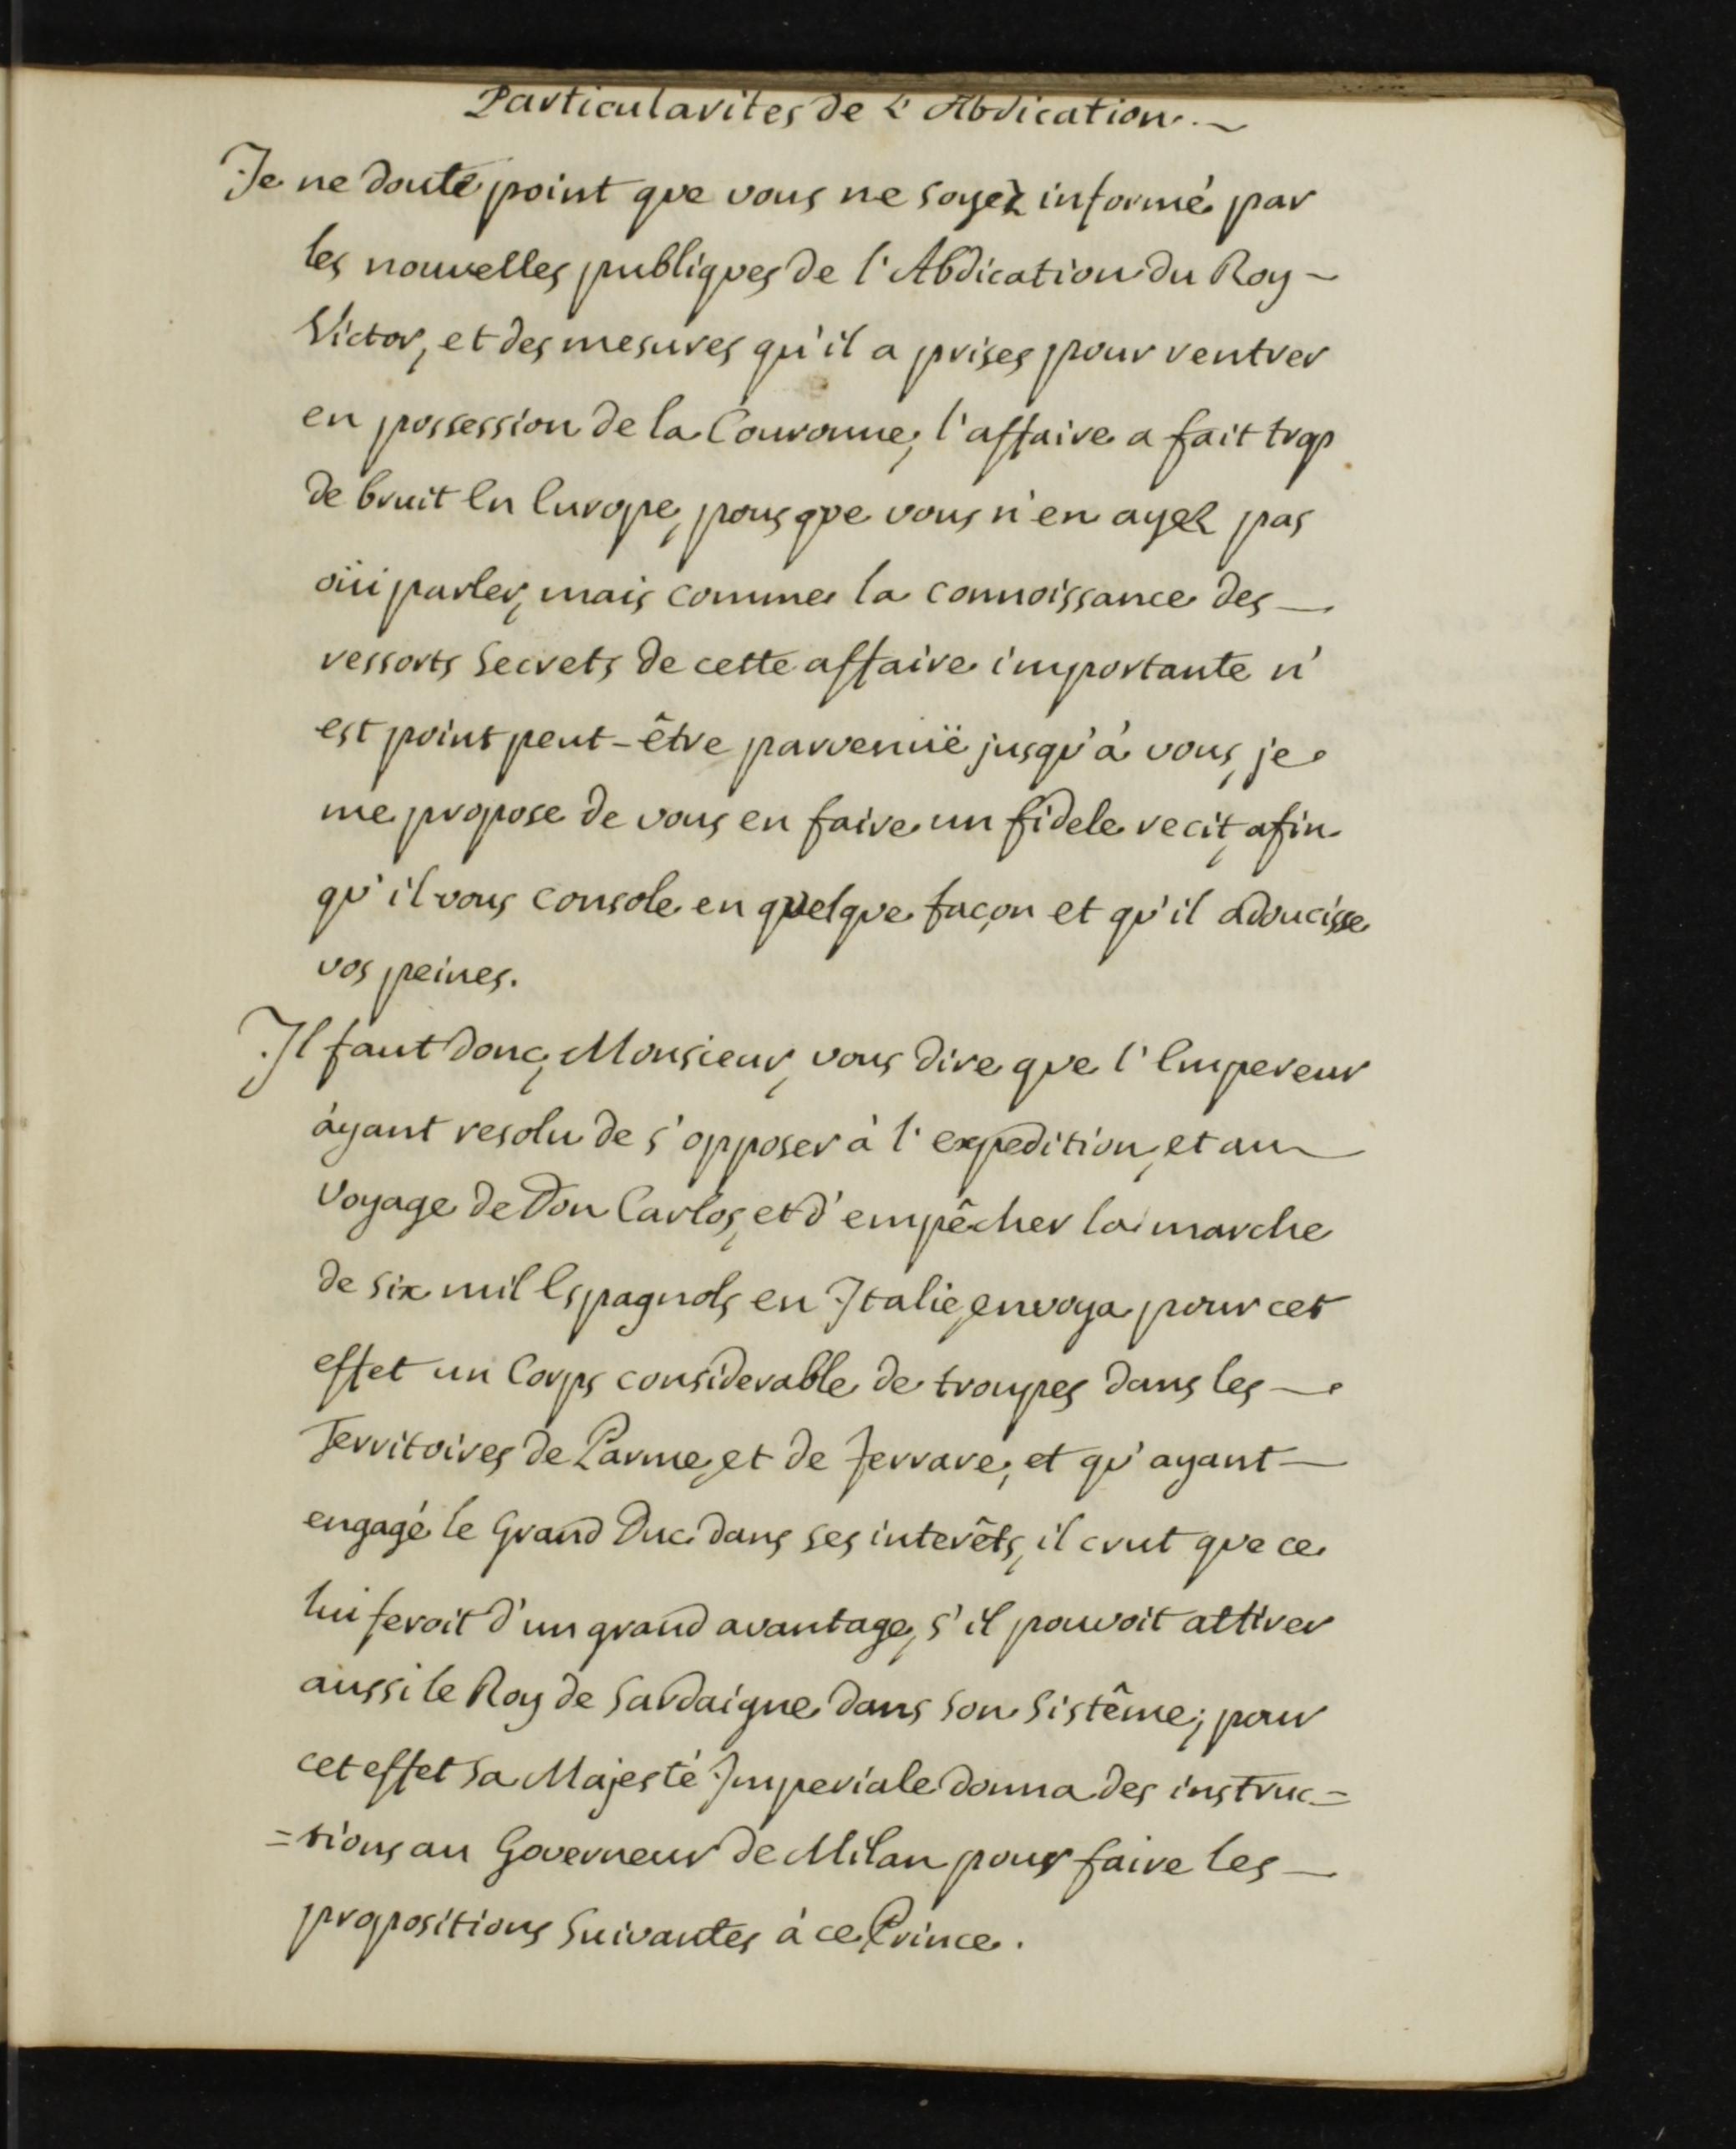 Particularites de L'Abdication.
Je ne doute point que vous ne soyez informé par
les nouvelles publiques de l'Abdication du Roy
Victor, et des mesures qu'il a prises pour rentrer
en possession de la Couronne, l'affaire a fait trop
de bruit En Europe, pour que vous n'en ayez pas
oüi parler, mais comme la connoissance des
ressorts Secrets de cette affaire importante n'
est point peut-être parvenuë jusqu'à vous, je
me propose de vous en faire un fidele recit, afin
qu'il vous console en quelque façon et qu'il adoucisse
vos peines.
Il faut donc, Monsieur, vous dire que l'Empereur
áyant resolu de s'opposer à l'expedition, et au
Voyage de Don Carlos, et d'empêcher la marche
de Six mil Espagnols en Italie, envoya pour cet
effet un Corps considerable de troupes dans les
Territoires de Parme, et de Ferrare, et qu'ayant
engagé le Grand Duc dans ses interêts, il crut que ce
lui seroit d'un grand avantage, s'il pouvoit attirer
aussi le Roy de Sardaigne dans Son Sistême; pour
cet effet Sa Majesté Imperiale donna des instruc=
=tions au Governeur de Milan pour faire les
propositions Suivantes à ce Prince.